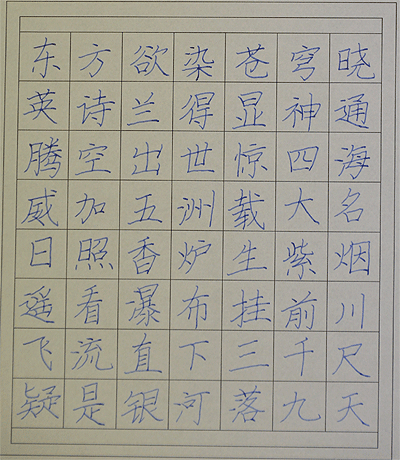 东方欲染苍穹晓
英诗兰得显神通
腾空出世惊四海
威加五洲载大名
日照香炉生紫烟
遥看瀑布挂前川
飞流直下三千尺
疑是银河落九天